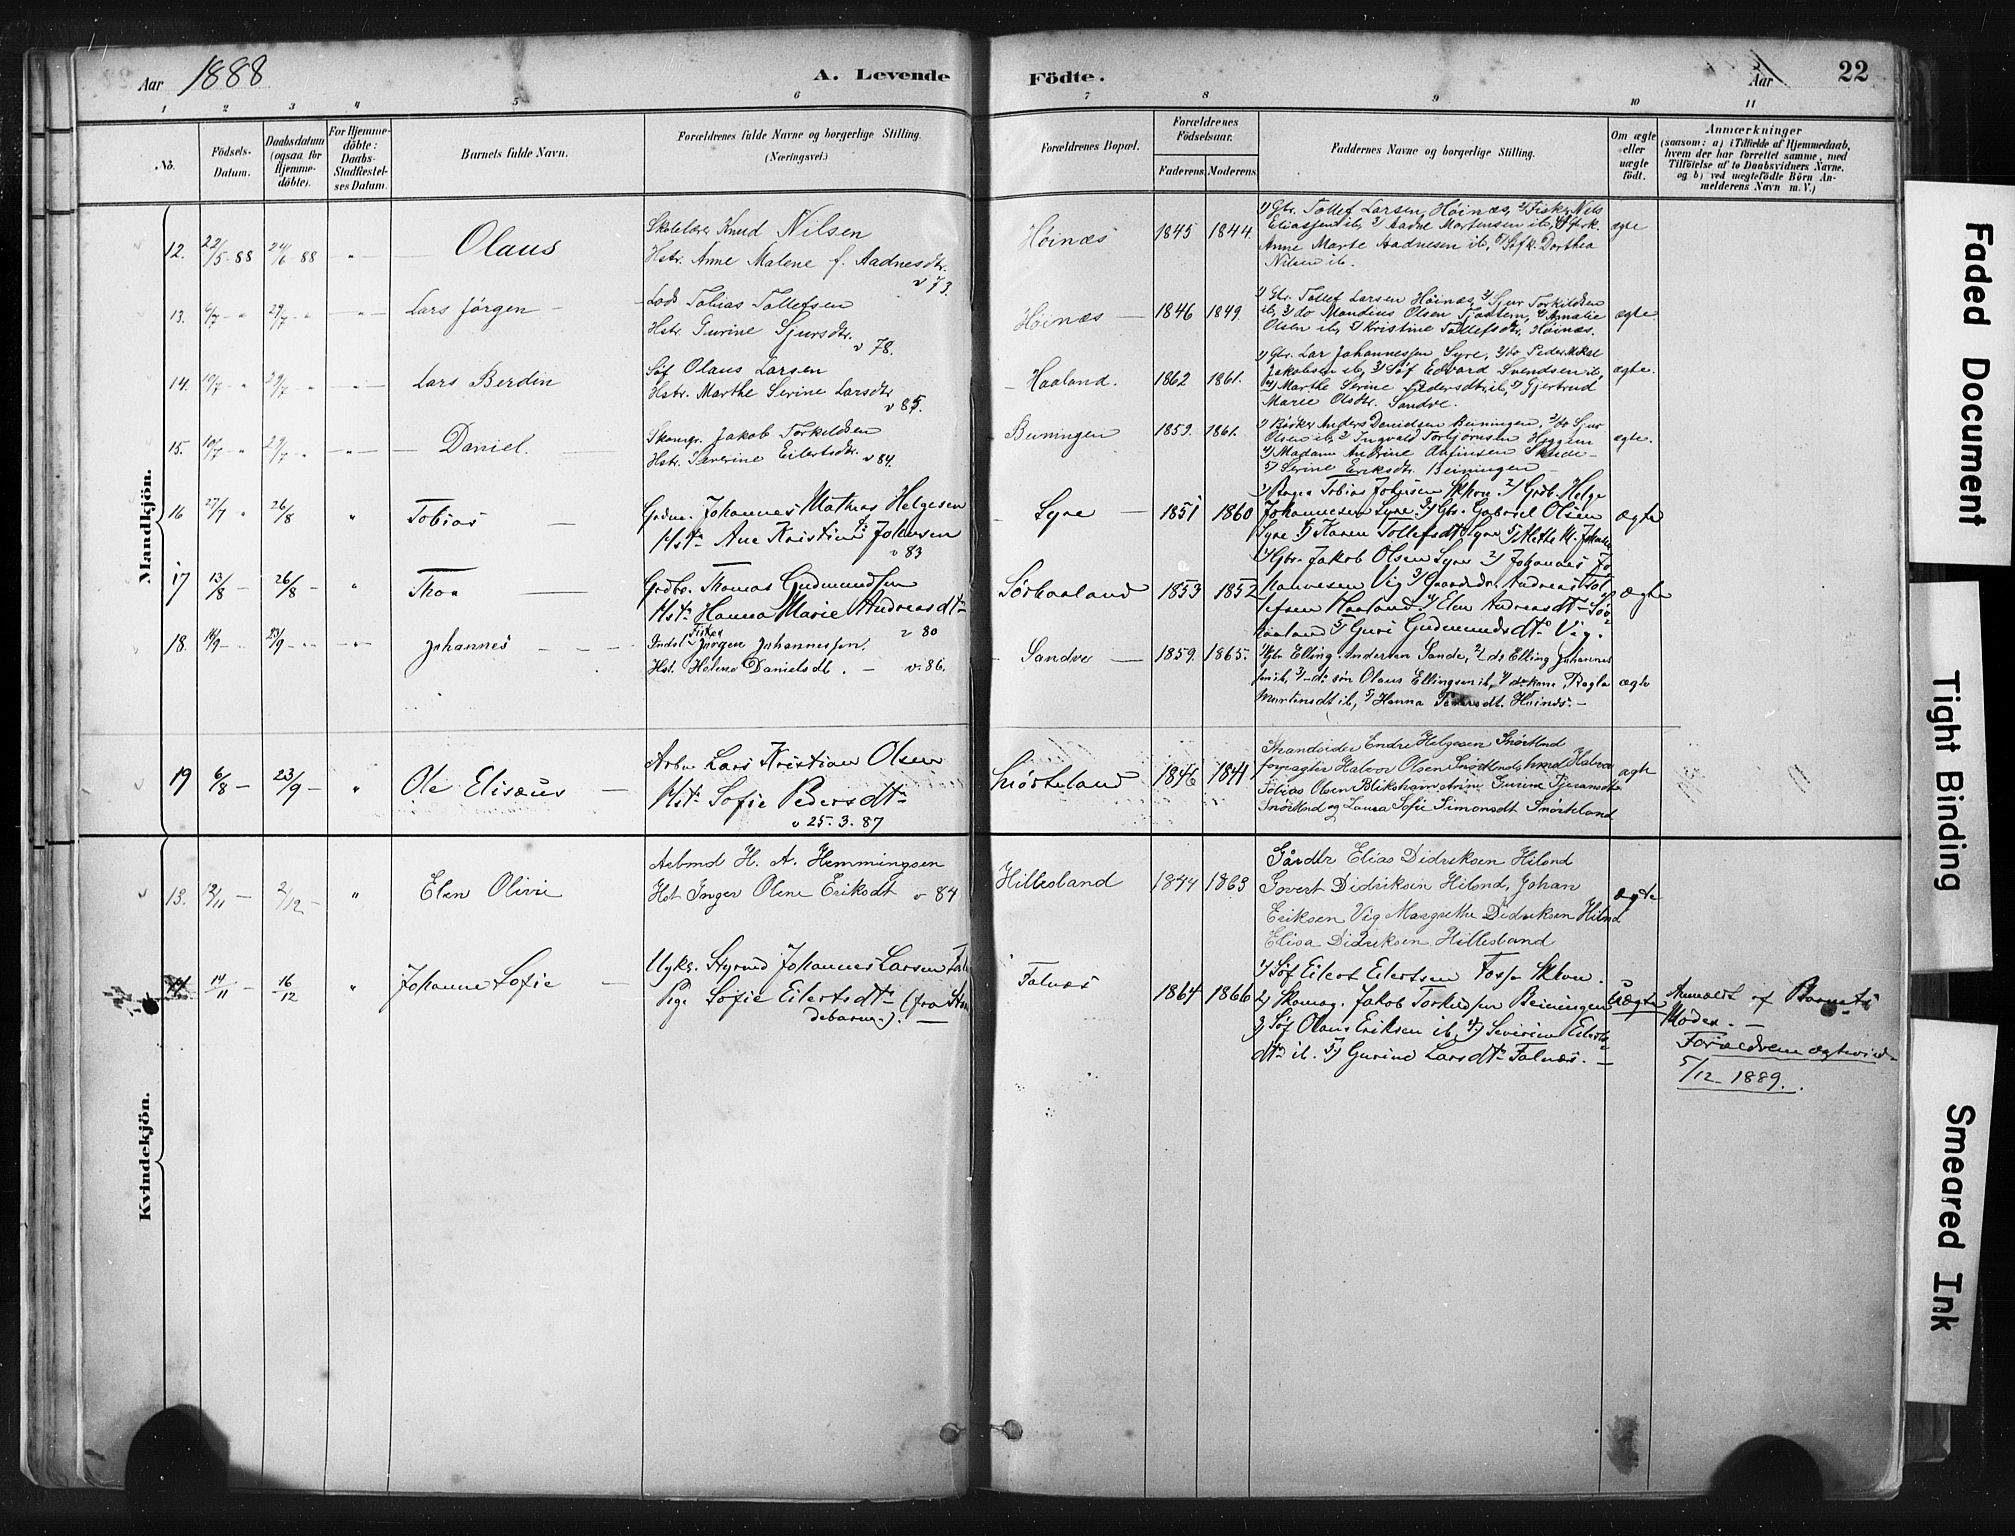 Aar 1888
A. Levende
Födte.
Aar
22
1 2 3 4 5 6 7 8 9 10 11
No.
Födsels-
Datum.
Daabsdatum
(ogsaa for
Hjemme-
döbte).
For Hjemme-
döbte:
Daabs-
Stadfæstel-
ses Datum.
Barnets fulde Navn.
Forældrenes fulde Navne og borgerlige Stilling.
(Næringsvei.)
Forældrenes Bopæl.
Forældrenes
Födselsaar.
Faderens.
Moderens.
Faddernes Navne og borgerlige Stilling.
Om ægte
eller
uægte
födt.
Anmærkninger
(saasom: a) i Tilfælde af Hjemmedaab,
hvem der har forrettet samme, med
Tilföielse af to Daabsvidners Navne.
og b) ved uægtefödte Börn An-
melderens Navn m. V.)
Mandkjön.
12. 22/5 88 24/6 88 - " - Olaus
Skolelærer Knud Nilsen
Hstr. Anne Malene f. Aadnesdtr.
v 73.
Höinæs 1845 1844
1) Gbr. Tollef Larsen Höinæs, 2) Fisker Nils
Eliassen ib, 3) Aadne Mortensen ib, 4)
Anne Marte Aadnesen ib, 5) Dorthea
Nilsen ib.
ægte
13. 6/7 - " 29/7 - " - " - Lars Jørgen
Lods Tobias Tollefsen
Hstr. Gurine Sjursdtr.
v 78.
Höinæs 1846 1849
1) Gbr. Tollef Larsen Höinæs, 2) Sjur Torkildsen
ib, 3) do Mandius Olsen 4) Amalie
Olsen ib, 5) Kristine Tollefsdtr. Höinæs.
ægte
14. 10/7 - " 29/7 - " Lars Berdin
Söf Olaus Larsen
Hstr. Marthe Serine Larsdtr
v 85.
Haaland. 1862 1861.
1) Gbr. Lar Johannessen Syre, 2) do Peder Mikal
Jakobsen ib, 3) Söf Edvard Svendsen ib,
4) Marthe Serine Pedersdtr. ib, 5) Gjertrud
Marie Olsdtr. Sandve.
ægte.
15. 10/7 - " 29/7 - " Daniel.
Skomgr. Jakob Torkildsen
Hstr. Severine Eilertsdtr.
v 84.
Beiningen 1859. 1861.
1) Bösker Anders Danielsen Beiningen, 2) do Sjur
Olsen ib, 3) Ingvald Torbjörnsen
4) Madam Andrine Olufinsen Skude-
5) Serine Eriksdtr. Beiningen
ægte.
16 27/7 " 26/8 " Tobias
Johannes Mathias Helgesen
Hstr Ane Kristine Johnsen
v 83
Syre 1851 1860
1) Tobias Johnsen 2) Helge
Johannesen Syre 3) Gbr. Gabriel Olsen
Syre 4) Karen Tollefsdtr Syre 5) Mette M. Johnsen
ægte
17 13/8 - 26/8 - " Thoa
Grdbr. Thomas Gudmundsen
Hstr Hanna Marie Andreasdtr
v 80
Sörhaaland 1853 1852
1) Gbr. Jakob Olsen Syre 2) Johannes Jo
hannesen Vig 3) Andreas Tol
lefsen Haaland 4) Elen Andreasdtr Sör
haaland 5) Guri Gudmundsdtr Vig.
ægte
18. 14/9 - " 23/9 - " Johannes
Indst Fisker Jörgen Johannessen
Hst. Helene Danielsdt. - v. 86.
Sandve 1859. 1865.
1) Gbr Elling Andersen Sande, 2) do Elling Johannes
sen ib, 3) do sön Olaus Ellingsen ib, 4) do kone Ragla
Martinsdt ib, 5) Hanna Pedersdt. Höines.
ægte
19 6/8 - 23/9 - " Ole Elisæus
Arbm. Lars Kristian Olsen
Hstr Sofie Pedersdtr
v 25. 3. 87
Snörteland 1846 1841
Strandsider Endre Helgesen Snörtlnd
forpagter Halvor Olsen Snörtlnd,
Tobias Olsen Blikshavn Gurine Tjeransdt
Snörtlnd og Laura Sofie Simonsdt Snörteland
ægte
Kvindekjön.
13. 13/11 - 2/12 - " Elen Olivie
Arbmd H. A. Hemmingsen
Hst Inger Olene Eriksdt v 84
Hillesland 1844 1863
Gårdbr Elias Didriksen Hilsnd
Govert Didriksen Hilsnd, Johan
Eriksen Vig Margrethe Didriksen Hilsnd
Elisa Didriksen Hillesland
ægte
14 14/11 - 16/12 " Johanne Sofie
Ugkr. Styrmd Johannes Larsen
Pige Sofie Eilertsdtr (fra Stran
debarm.).
Falnæs 1864 1866
1) Söf Eilert Eilertsen
2) Skomag. Jakob Torkildsen Beiningen
3) Söf Olaus Eriksen ib, 4) Severine Eilerts
dtr ib. 5) Gurine Larsdtr Falnæs.
Uægte
Anmeldt af Barnets
Moder.
Forældrene ægteviet
5/12 1889.
Faded Document
Tight Binding
Smeared Ink